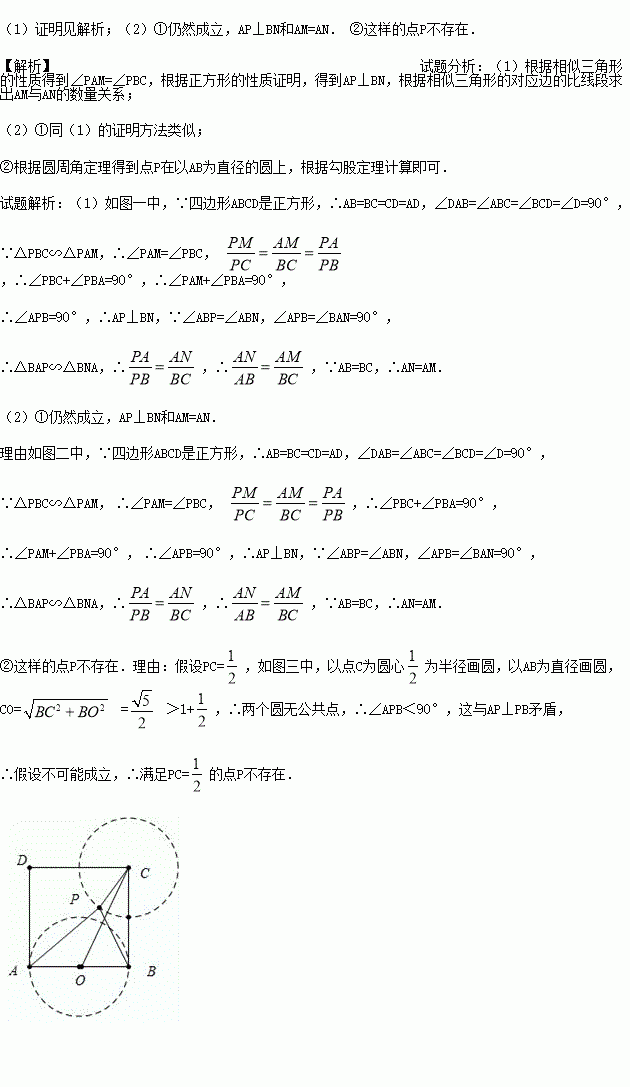 （1）证明见解析；（2）①仍然成立，AP⊥BN和AM=AN． ②这样的点P不存在．
【解析】 试题分析：（1）根据相似三角形
的性质得到∠PAM=∠PBC，根据正方形的性质证明，得到AP⊥BN，根据相似三角形的对应边的比线段求
出AM与AN的数量关系；
（2）①同（1）的证明方法类似；
②根据圆周角定理得到点P在以AB为直径的圆上，根据勾股定理计算即可．
试题解析：（1）如图一中，∵四边形ABCD是正方形，∴AB=BC=CD=AD，∠DAB=∠ABC=∠BCD=∠D=90°，
∵△PBC∽△PAM，∴∠PAM=∠PBC， PM/PC=AM/BC=PA/PB
，∴∠PBC+∠PBA=90°，∴∠PAM+∠PBA=90°，
∴∠APB=90°，∴AP⊥BN，∵∠ABP=∠ABN，∠APB=∠BAN=90°，
∴△BAP∽△BNA，∴PA/PB=AN/BC，∴AN/AB=AM/BC，∵AB=BC，∴AN=AM．
（2）①仍然成立，AP⊥BN和AM=AN．
理由如图二中，∵四边形ABCD是正方形，∴AB=BC=CD=AD，∠DAB=∠ABC=∠BCD=∠D=90°，
∵△PBC∽△PAM， ∴∠PAM=∠PBC， PM/PC=AM/BC=PA/PB，∴∠PBC+∠PBA=90°，
∴∠PAM+∠PBA=90°， ∴∠APB=90°，∴AP⊥BN，∵∠ABP=∠ABN，∠APB=∠BAN=90°，
∴△BAP∽△BNA，∴PA/PB=AN/BC，∴AN/AB=AM/BC，∵AB=BC，∴AN=AM．
②这样的点P不存在．理由：假设PC=1/2，如图三中，以点C为圆心1/2为半径画圆，以AB为直径画圆，
CO=√(BC²+BO²) =√5/2 >1+1/2，∴两个圆无公共点，∴∠APB＜90°，这与AP⊥PB矛盾，
∴假设不可能成立，∴满足PC=1/2的点P不存在．
D
C
P
A
O
B